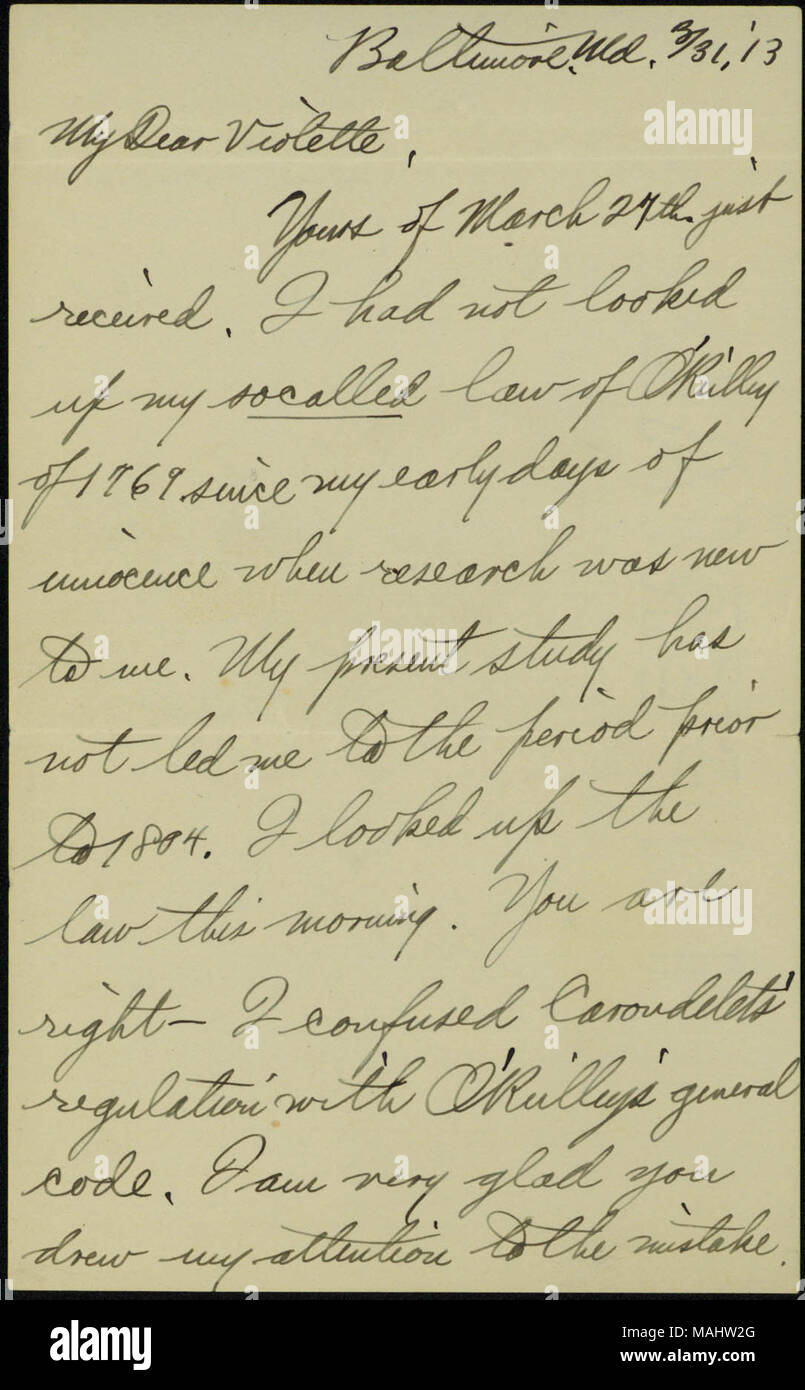 Baltimore, Md. 3/31, '13
My Dear Violette,
Yours of March 27th just
received. I had not looked
up my socalled law of O'Reilley
of 1769 since my early days of
innocence when research was new
to me. My present study has
not led me to the period prior
to 1804. I looked up the
law this morning. You are
right— I confused Carondelet's
regulation with O'Reilley's general
code. I am very glad you
drew my attention to the mistake.
alamy
Image ID: MAHW2G
www.alamy.com